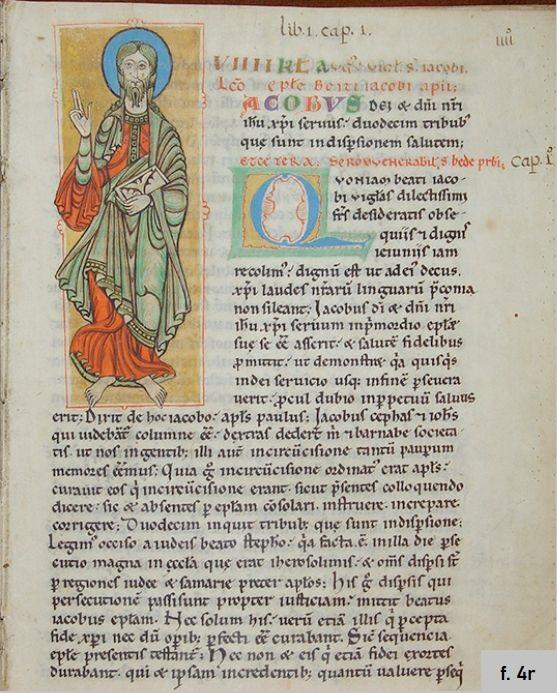 lib. 1. cap. 1.
IIII
VIIII KL AVG. VIGL. S. IACOBI.
Lc̄o epłe Beati iacobi apłi:
IACOBVS DEI & dñi nr̄i
ihu xp̄i seruus: duodecim tribub;
que sunt in dispsionem salutem;
ETCETERA. SERMO VENERABILIS bede prbi, Cap. 1º
QVONIAM beati iaco-
bi vigłas dilectissimi
fr̄s desideratis obse-
quiis & dignis
ieiuniis iam
recolim᷒: dignū est ut ad ei᷒ decus.
xp̄i laudes nr̄arū linguarū p̄conia
non sileant. Jacobus dī & dñi nr̄i
ihu. xp̄i seruum in p̄mordio epłę
suę se eē asserit. & salutē fidelibus
p̄mittit. ut demonstret q̄a quisq̄s
in dei seruicio usq; in finē p̄seuera
uerit. p̄cul dubio in p̄petuū saluus
erit: Dixit de hoc iacobo. apłs paulus: Jacobus cephas ⁊ iohs
qui uidebāt᷒ columne eē. dextras dedert̄ m̄ ⁊ barnabe societa-
tis. ut nos in gentib; illi aut̄ in circūcisione tantū pauperum
memores eēmus: Quia ḡ in circūcisione ordinat᷒ erat apłs.
curauit eos q̄ in circūcisione erant. sicut p̄sentes colloquendo
dicere: sic & absentes p epłam cōsolari. instruere. increpare.
corrigere; Duodecim inquit tribub; que sunt in dispsione;
Legim᷒ occiso a iudeis beato stepho. q̄a facta ē in illa die p̄se
cutio magna in ęcclā que erat iherosolimis. & om̄s dispsi st̄
p regiones iudee & samarie preter apłos: His ḡ dispsis qui
persecutionem passi sunt propter iusticiam. mittit beatus
iacobus epłam. Nec solum his. uerū etiā illis q̄ p̄cepta
fide xp̄i nec dū opib; p̄fecti eē curabant. Sic̄ sequencia
epłe presentis testant̄; Nec non & eis q̄ etiā fidei exortes
durabant. qui & ipsam in credentib; quantū ualuere p̄seq̄
f. 4r